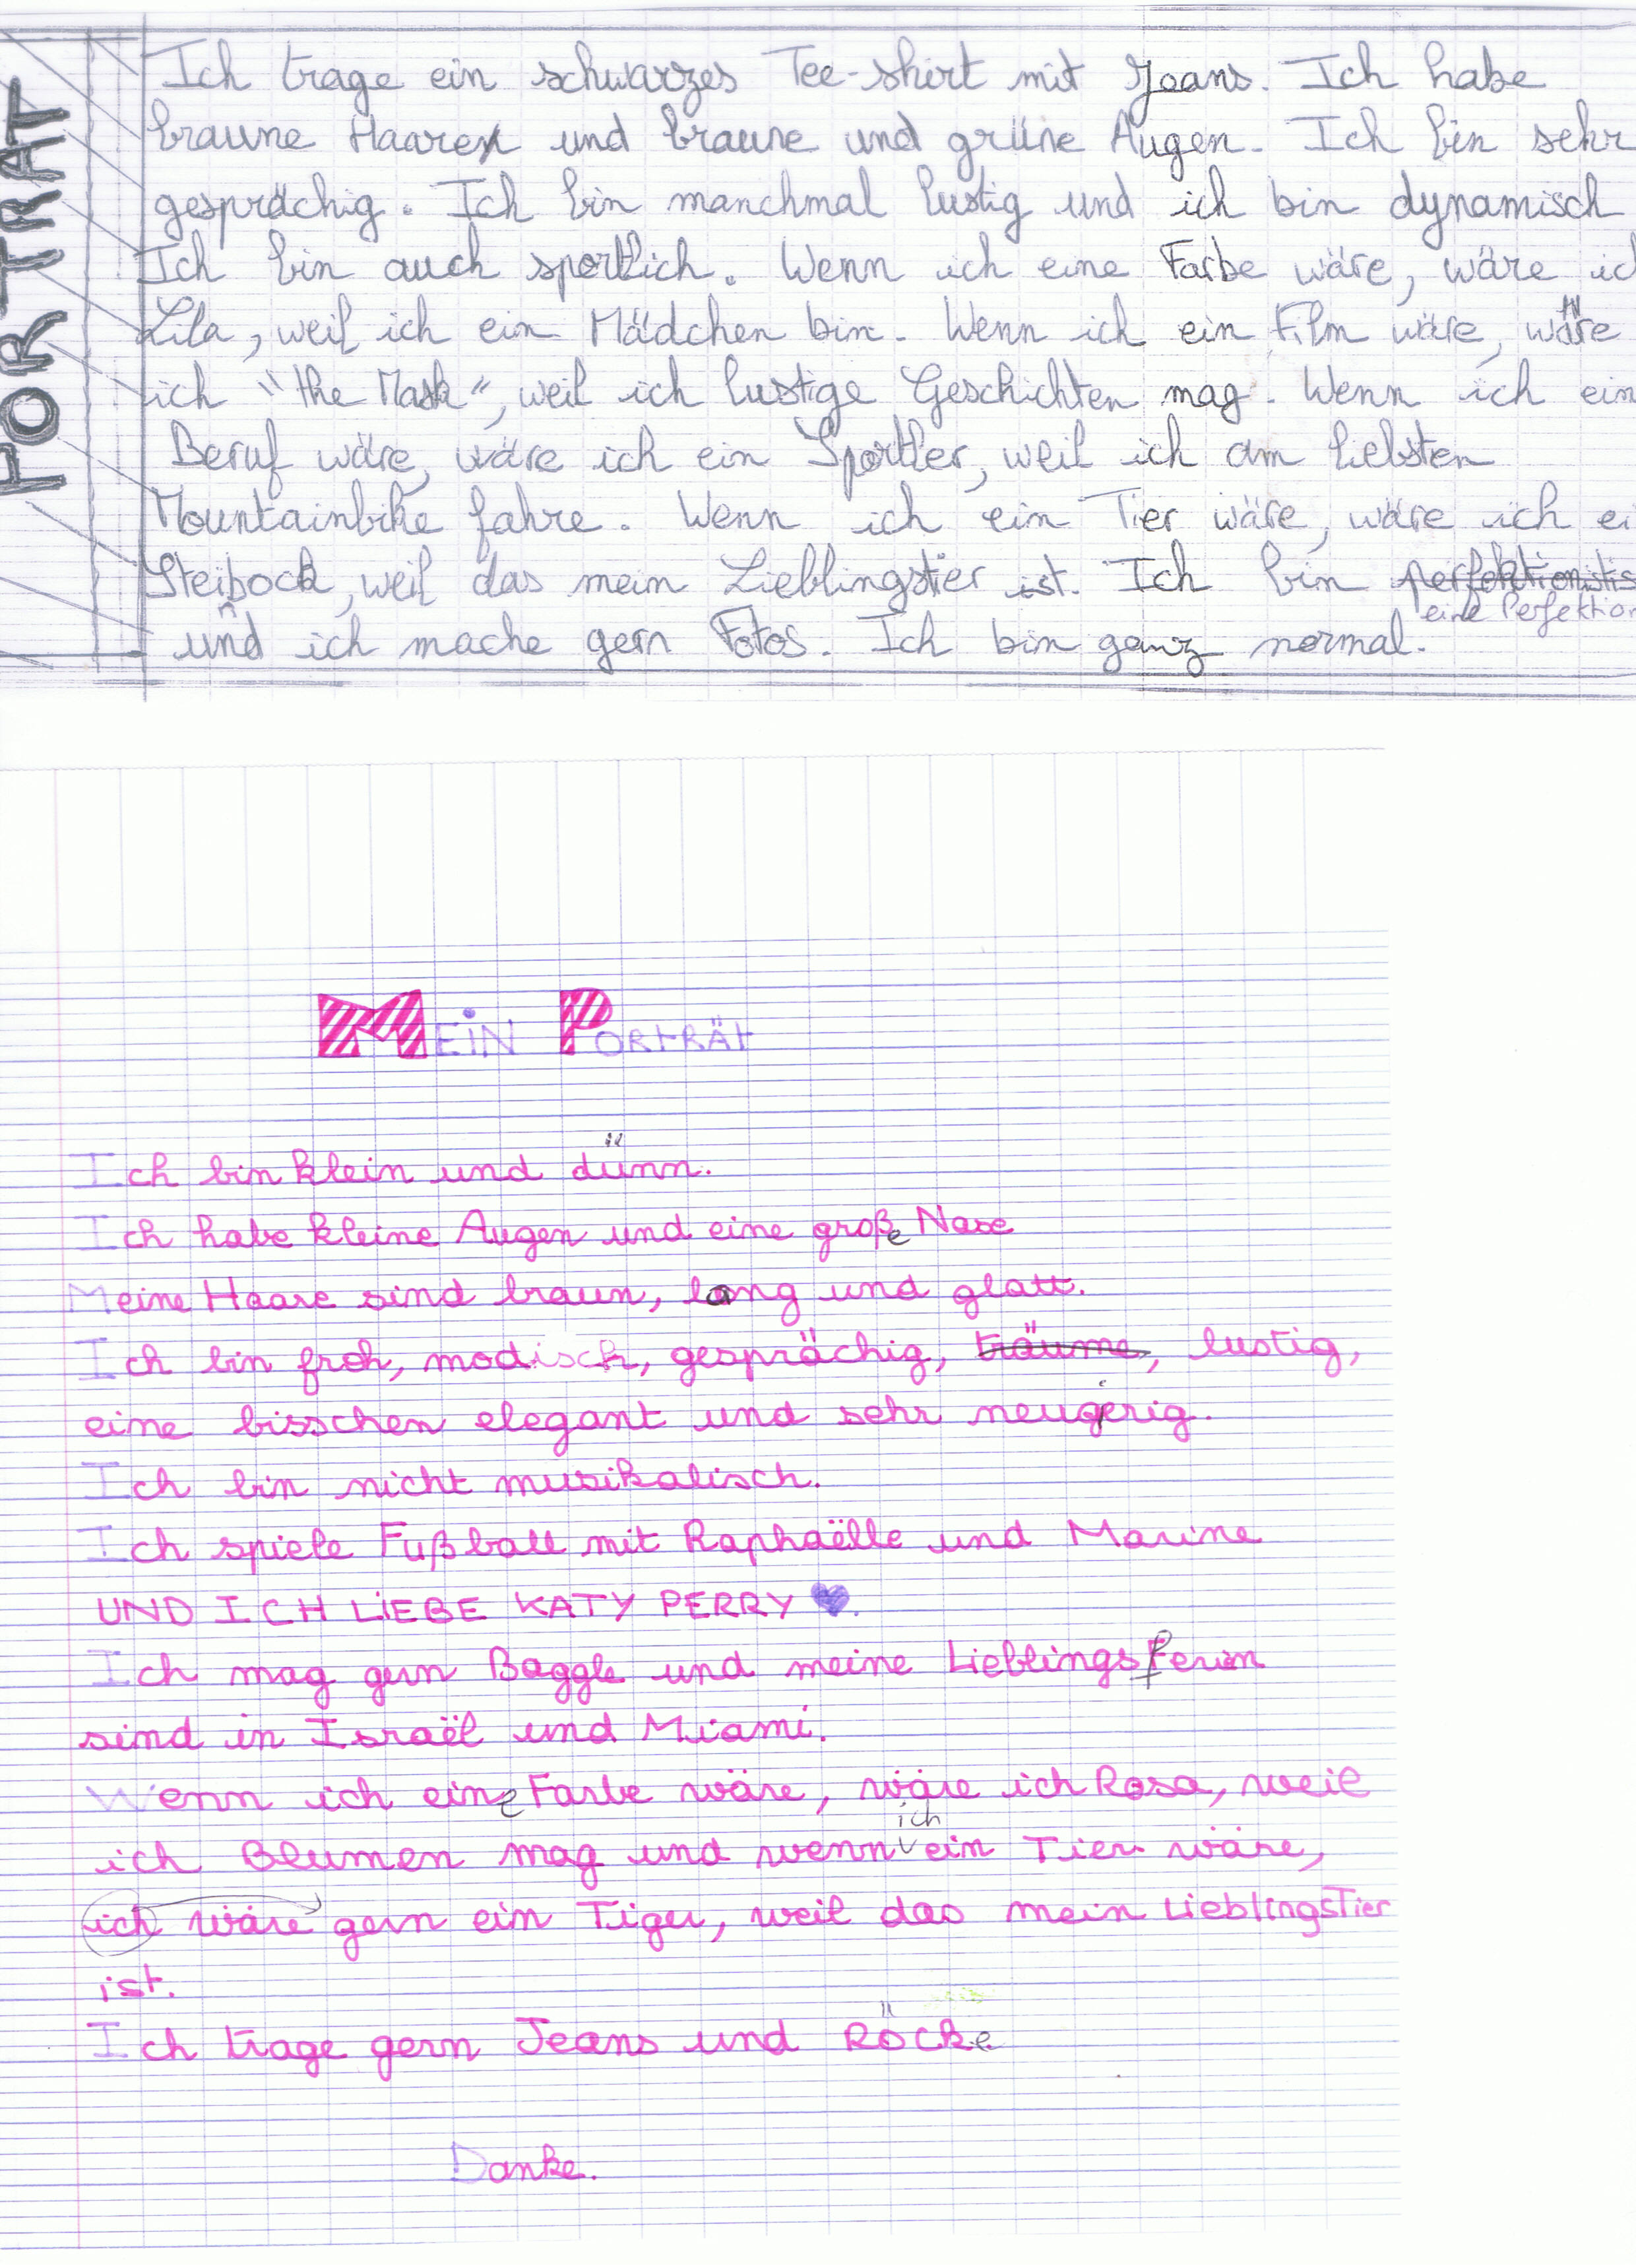 PORTRÄT
Ich trage ein schwarzes Tee-shirt mit Jeans. Ich habe
braune Haare und braune und grüne Augen. Ich bin sehr
gesprächig. Ich bin manchmal lustig und ich bin dynamisch
Ich bin auch sportlich. Wenn ich eine Farbe wäre, wäre ich
Lila, weil ich ein Mädchen bin. Wenn ich ein Film wäre, wäre
ich "the Mask", weil ich lustige Geschichten mag. Wenn ich ein
Beruf wäre, wäre ich ein Sportler, weil ich am liebsten
Mountainbike fahre. Wenn ich ein Tier wäre, wäre ich ei
Steibock, weil das mein Lieblingstier ist. Ich bin perfektionistis
eine Perfektion
und ich mache gern Fotos. Ich bin ganz normal.
MEIN PORTRÄT
Ich bin klein und dünn.
Ich habe kleine Augen und eine große Nase
Meine Haare sind braun, lang und glatt.
Ich bin froh, modisch, gesprächig, träume, lustig,
eine bisschen elegant und sehr neugierig.
Ich bin nicht musikalisch.
Ich spiele Fußball mit Raphaëlle und Marine
UND ICH LIEBE KATY PERRY ♥.
Ich mag gern Baggle und meine Lieblingsferien
sind in Israël und Miami.
Wenn ich eine Farbe wäre, wäre ich Rosa, weil
ich Blumen mag und wenn ich ein Tier wäre,
ich wäre gern ein Tiger, weil das mein LieblingsTier
ist.
Ich trage gern Jeans und Röcke
Danke.